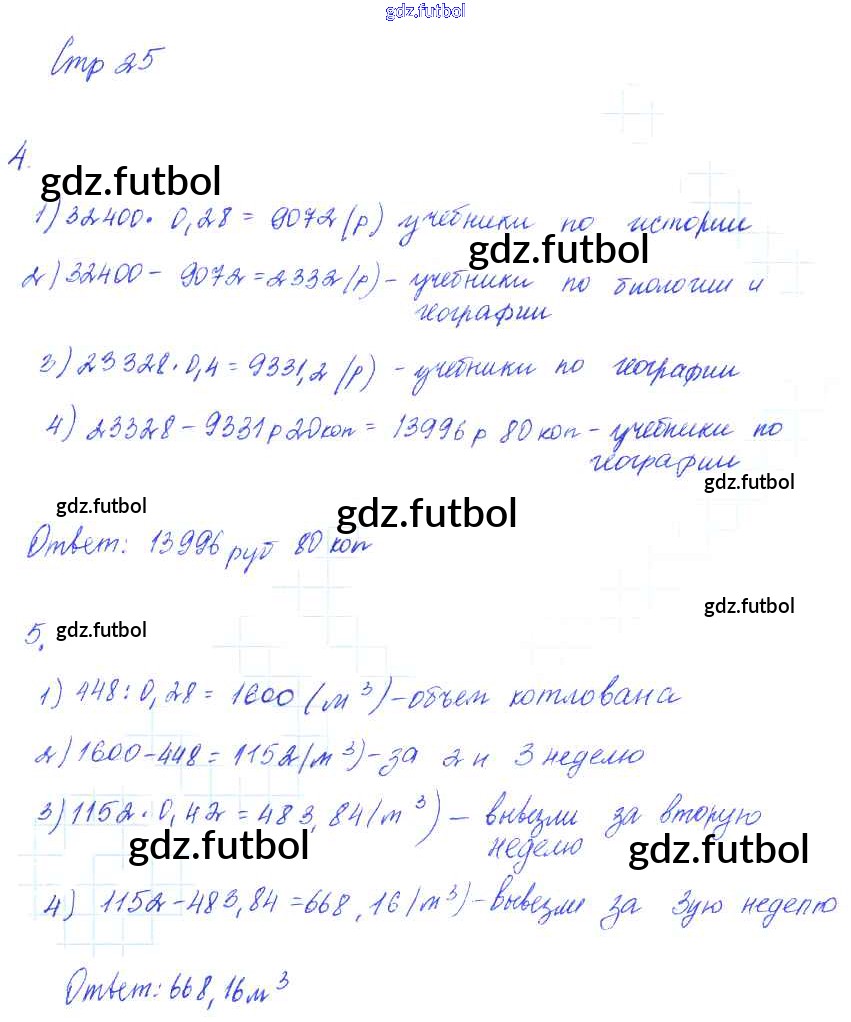 gdz.futbol
Стр 25
4.
gdz.futbol
1) 32400 · 0,28 = 9072 (р) учебники по истории
gdz.futbol
2) 32400 - 9072 = 2332 (р) - учебники по биологии и
географии
3) 23328 · 0,4 = 9331,2 (р) - учебники по географии
4) 23328 - 9331 р 20 коп = 13996 р 80 коп - учебники по
географии
gdz.futbol
gdz.futbol
gdz.futbol
Ответ: 13996 руб 80 коп
gdz.futbol
5.
gdz.futbol
1) 448 : 0,28 = 1600 (м³) - объем котлована
2) 1600 - 448 = 1152 (м³) - за 2 и 3 неделю
3) 1152 · 0,42 = 483,84 (м³) - вывезли за вторую
неделю
gdz.futbol
gdz.futbol
4) 1152 - 483,84 = 668,16 (м³) - вывезли за 3ую неделю
Ответ: 668,16 м³